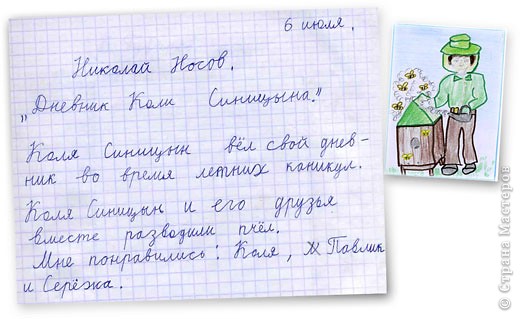 6 июля.
Николай Носов.
„Дневник Коли Синицына."
Коля Синицын вёл свой днев-
ник во время летних каникул.
Коля Синицын и его друзья
вместе разводили пчёл.
Мне понравились: Коля, Ж Павлик
и Серёжа.
© Страна Мастеров